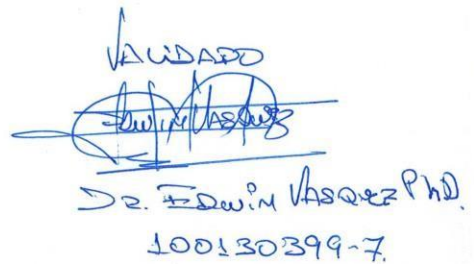 VALIDADO
Edwin Vasquez
Dr. Edwin Vasquez PhD.
100130399-7.